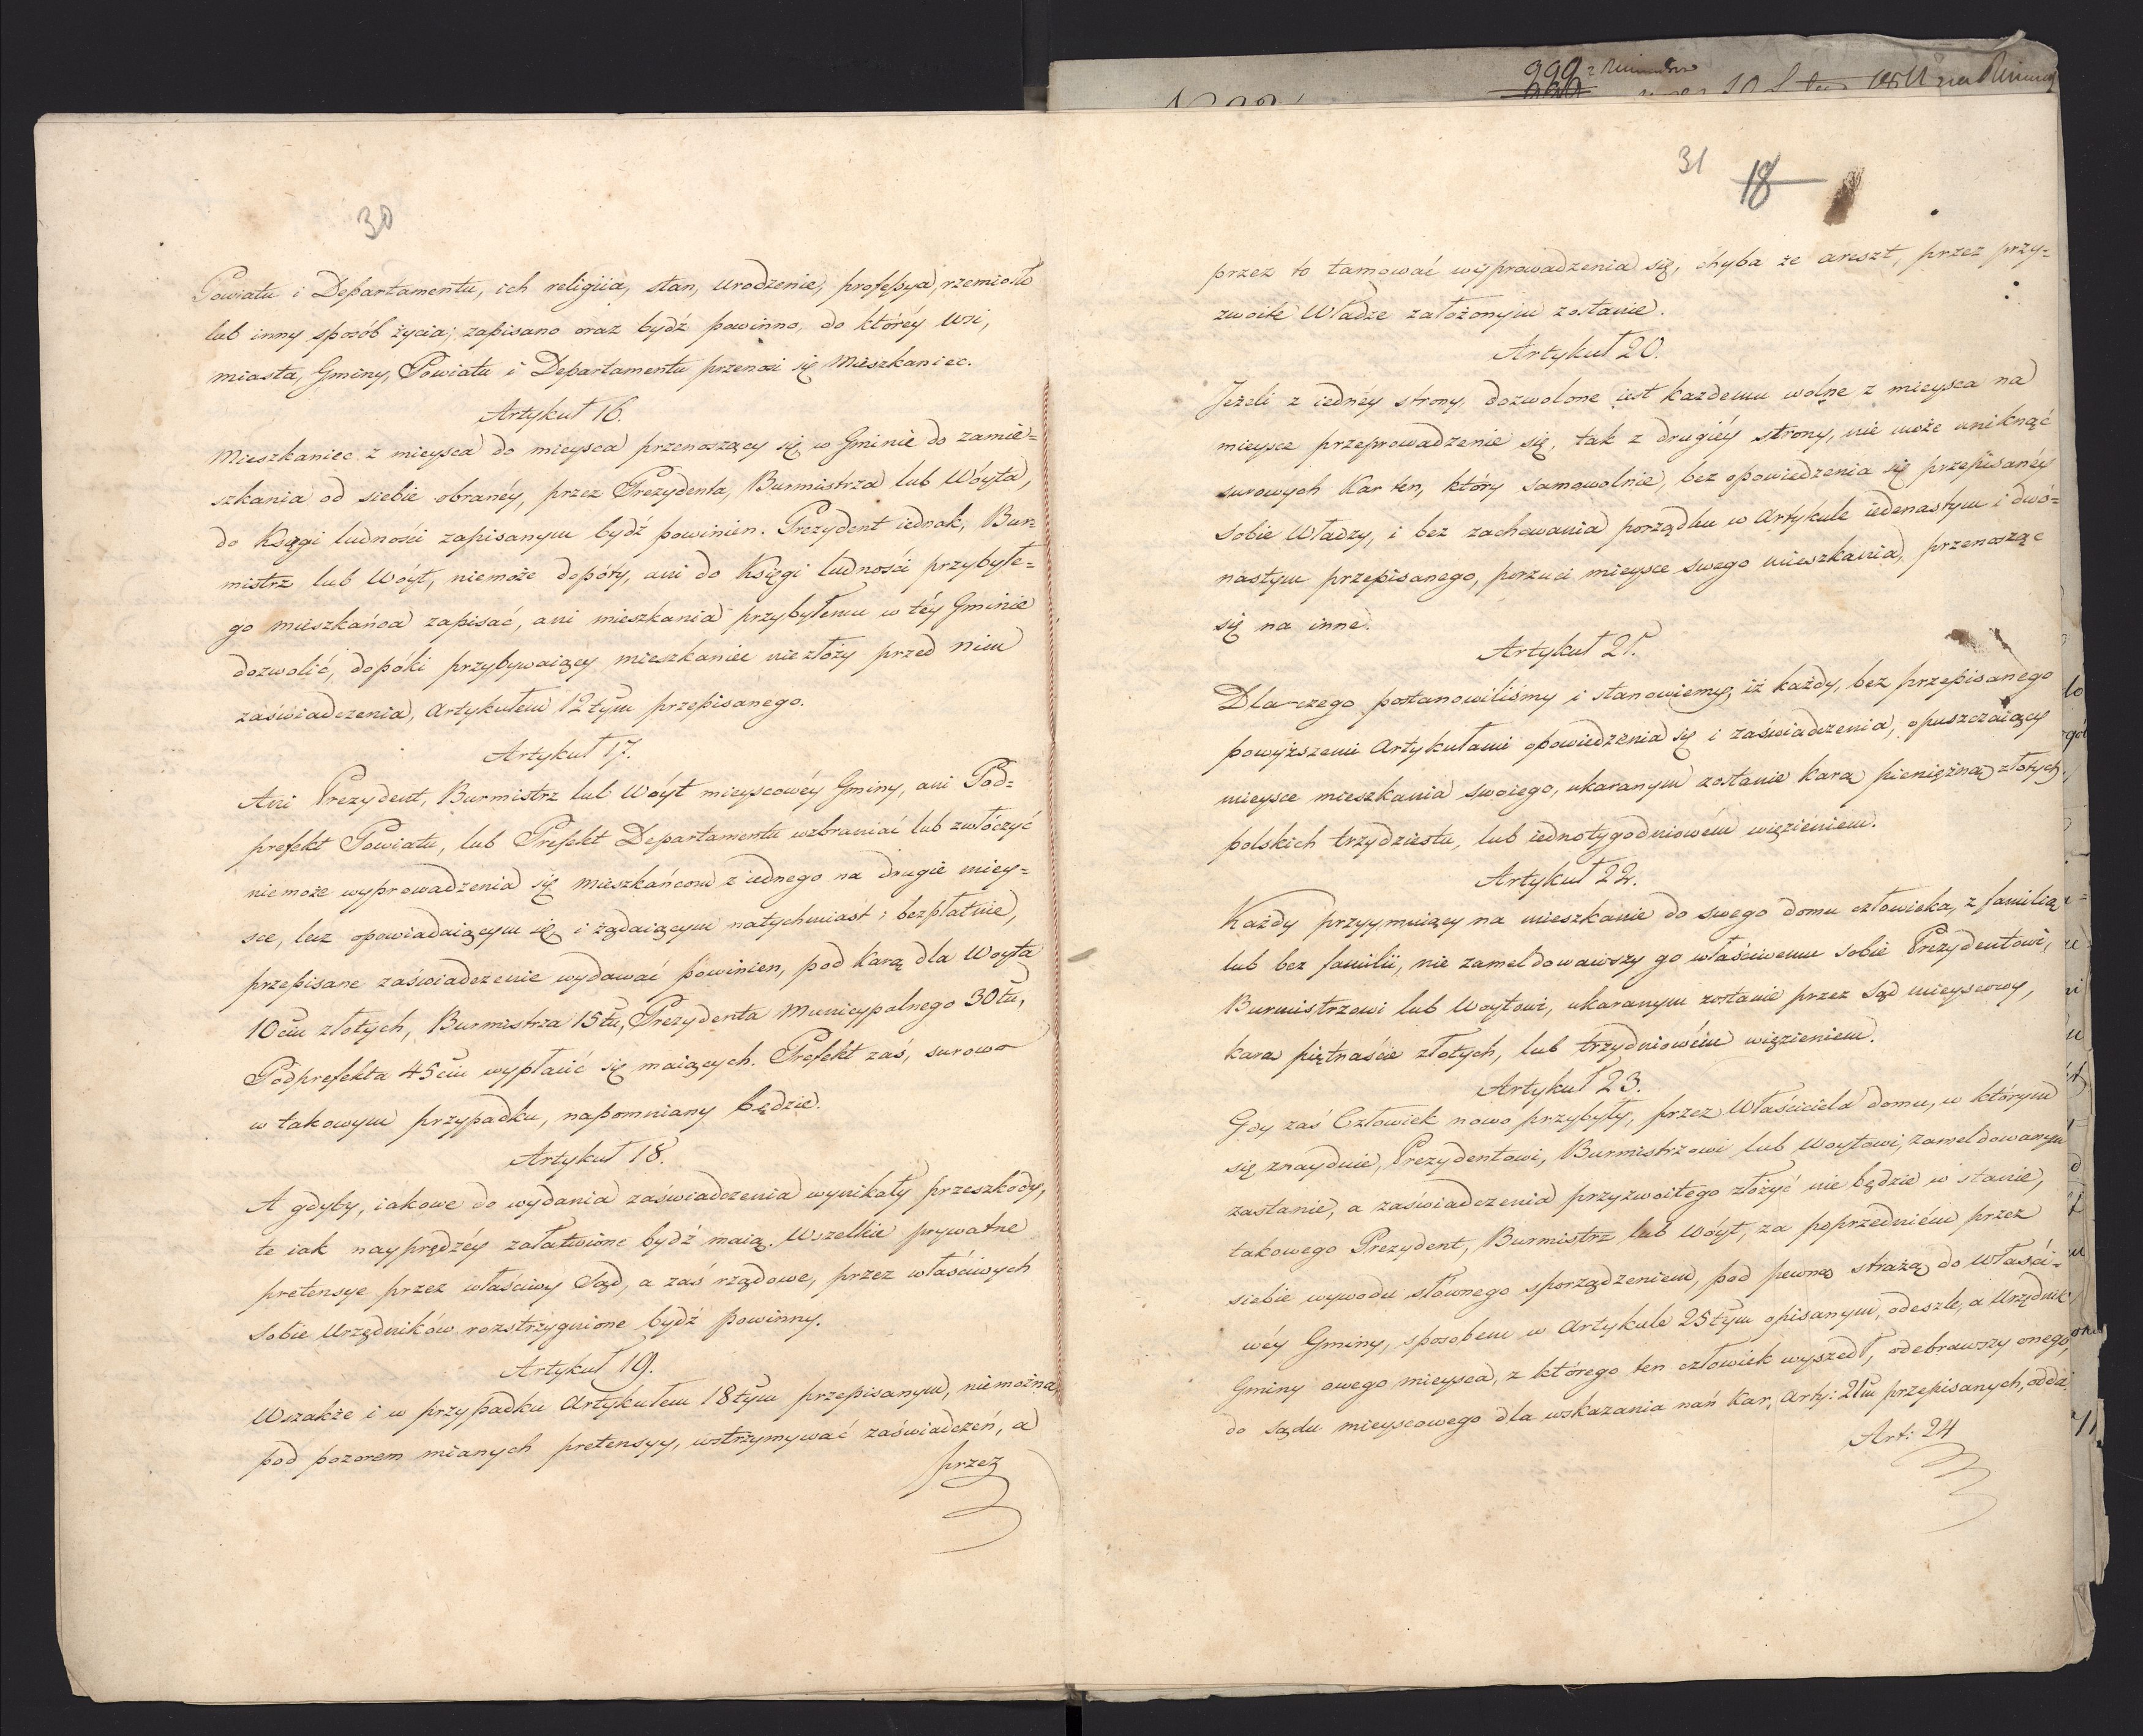 30
Powiatu i Departamentu, ich religiia, stan, urodzenie, professya, rzemiosło
lub inny sposób życia; zapisano oraz bydź powinno, do któréy wsi,
miasta, Gminy, Powiatu i Departamentu przenosi się Mieszkaniec.
Artykuł 16.
Mieszkaniec z mieysca do mieysca przenoszący się w Gminie do zamie=
szkania od siebie obranéy, przez Prezydenta, Burmistrza lub Wóyta,
do Księgi ludności zapisanym bydź powinien. Prezydent iednak, Bur=
mistrz lub Wóyt, niemoże dopóty, ani do Księgi ludności przybyłe=
go mieszkańca zapisać, ani mieszkania przybyłemu w téy Gminie
dozwolić, dopóki przybywaiący mieszkaniec niezłoży przed nim
zaświadczenia, Artykułem 12tym przepisanego.
Artykuł 17.
Ani Prezydent, Burmistrz lub Wóyt mieyscowéy Gminy, ani Pod=
prefekt Powiatu, lub Prefekt Departamentu wzbraniać lub zwłóczyć
niemoże wyprowadzenia się mieszkańcom z iednego na drugie miey=
sce, lecz opowiadaiącym się i żądaiącym natychmiast i bezpłatnie,
przepisane zaświadczenie wydawać powinien, pod karą dla Woyta
10ciu złotych, Burmistrza 15tu, Prezydenta Municypalnego 30tu,
Podprefekta 45ciu wypłacić się maiących. Prefekt zaś, surowo
w takowym przypadku, napomniany będzie.
Artykuł 18.
A gdyby, iakowe do wydania zaświadczenia wynikały przeszkody,
te iak nayprędzéy załatwione bydź maią. Wszelkie prywatne
pretensye przez właściwy Sąd, a zaś rządowe, przez właściwych
sobie Urzędników rozstrzygnione bydź powinny.
Artykuł 19.
Wszakże i w przypadku Artykułem 18tym przepisanym, niemożna
pod pozorem mianych pretensyy, wstrzymywać zaświadczeń, a
przez
31
18
przez to tamować wyprowadzenia się, chyba że areszt, przez przy=
zwoite Władze założonym zostanie.
Artykuł 20.
Jeżeli z iednéy strony, dozwolone iest każdemu wolne z mieysca na
mieysce przeprowadzenie się, tak z drugiéy strony, nie może uniknąć
surowych Kar ten, który samowolnie, bez opowiedzenia się przepisanéy
sobie Władzy, i bez zachowania porządku w Artykule iedenastym i dwu=
nastym przepisanego, porzuci mieysce swego mieszkania, przenosząc
się na inne.
Artykuł 21.
Dla czego postanowiliśmy i stanowiemy, iż każdy, bez przepisanego
powyższemi Artykułami opowiedzenia się i zaświadczenia, opuszczaiący
mieysce mieszkania swoiego, ukaranym zostanie karą pieniężną złotych
polskich trzydziestu, lub iednotygodniowém więzieniem.
Artykuł 22.
Każdy przyymuiący na mieszkanie do swego domu człowieka, z familią
lub bez familii, nie zameldowawszy go właściwemu sobie Prezydentowi,
Burmistrzowi lub Woytowi, ukaranym zostanie przez Sąd mieyscowy,
kara piętnaście złotych, lub trzydniowém więzieniem.
Artykuł 23.
Gdy zas Człowiek nowo przybyły, przez Właściciela domu, w którym
się znayduie, Prezydentowi, Burmistrzowi lub Woytowi, zameldowanym
zostanie, a zaświadczenia przyzwoitego złożyć nie będzie w stanie,
takowego Prezydent, Burmistrz lub Wóyt, za poprzedniém przez
siebie wywodu słownego sporządzeniem, pod pewną strażą do Właści=
wéy Gminy, sposobem w Artykule 25tym opisanym, odeszle, a Urzędnik
Gminy owego mieysca, z którego ten człowiek wyszedł, odebrawszy onego,
do sądu mieyscowego dla wskazania nań kar, Arty: 21m przepisanych, odda.
Art: 24